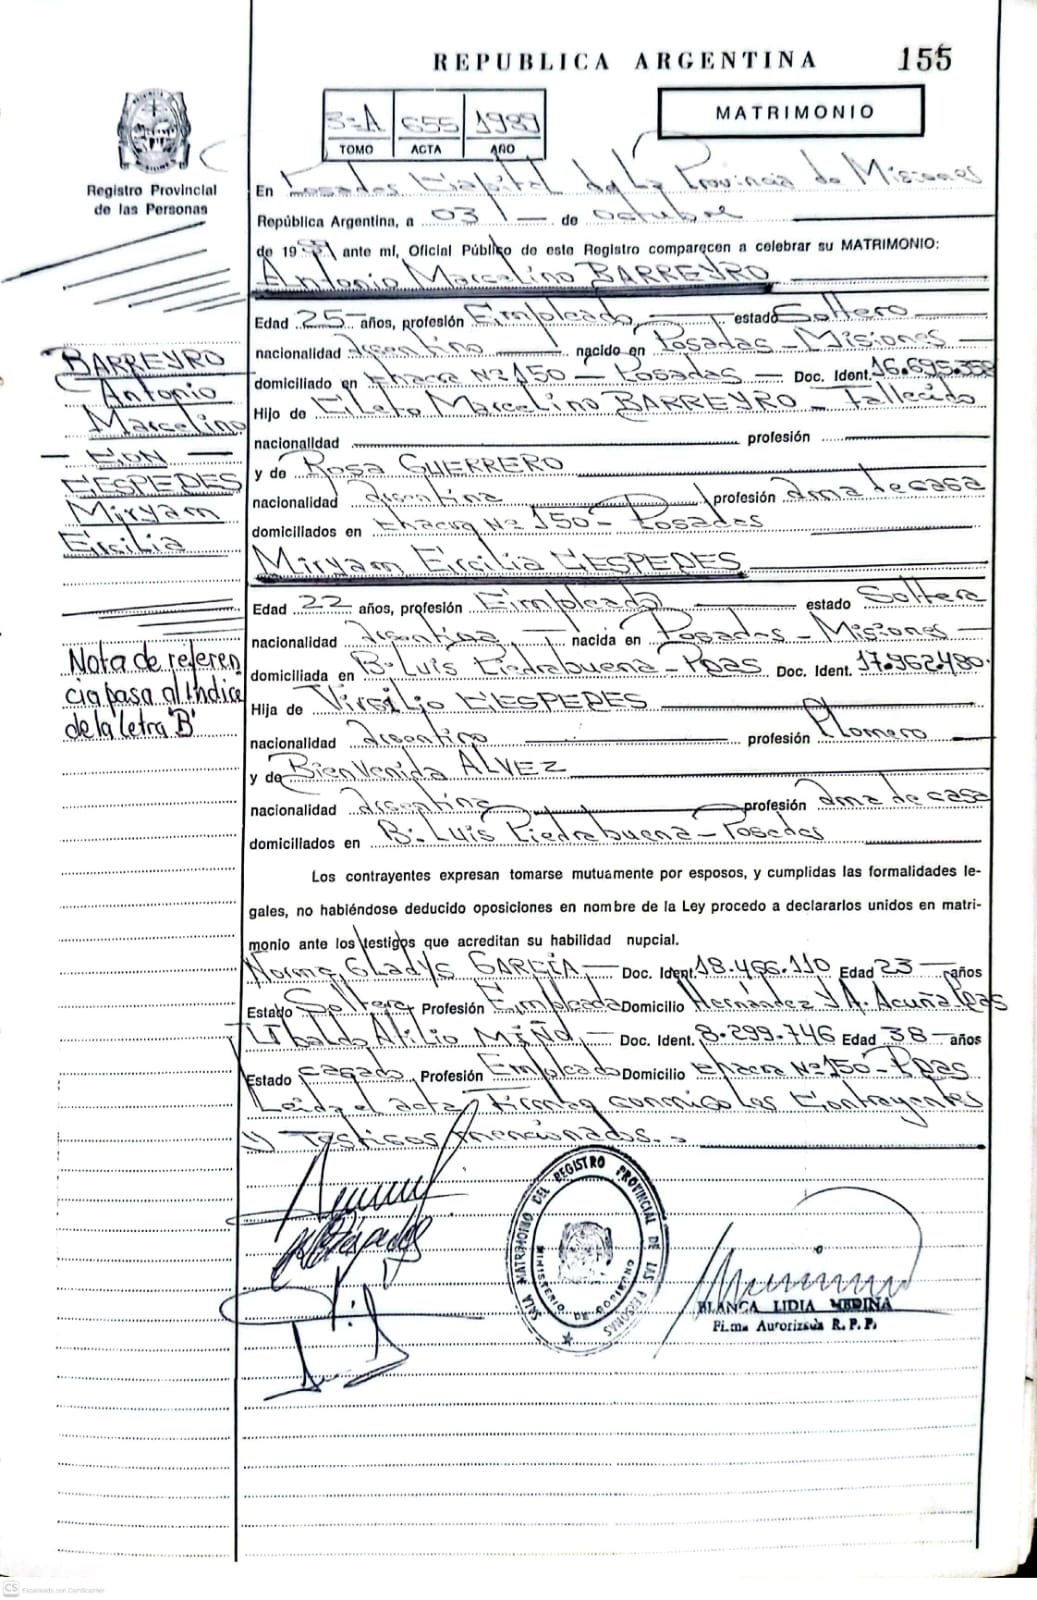 REPUBLICA ARGENTINA 155
MATRIMONIO
3=A 655 1989
TOMO ACTA AÑO
Registro Provincial
de las Personas
En Posadas Capital de La Provincia de Misiones
República Argentina, a 03 de octubre
de 1989 ante mí, Oficial Público de este Registro comparecen a celebrar su MATRIMONIO:
Antonio Marcelino BARREYRO
Edad 25 años, profesión Empleado estado Soltero
nacionalidad argentino nacido en Posadas - Misiones
domiciliado en Chacra Nº 150 - Posadas - Doc. Ident. 16.695.358
Hijo de Cleto Marcelino BARREYRO - Fallecido
nacionalidad profesión
y de Rosa GUERRERO
nacionalidad argentina profesión ama de casa
domiciliados en Chacra Nº 150 - Posadas
Miryam Ercilia CESPEDES
Edad 22 años, profesión Empleada estado Soltera
nacionalidad argentina nacida en Posadas - Misiones
domiciliada en B: Luis Piedrabuena - Pdas Doc. Ident. 17.962.480.
Hija de Virgilio CESPEDES
nacionalidad argentino profesión Plomero
y de Bienvenida ALVEZ
nacionalidad argentina profesión ama de casa
domiciliados en B: Luis Piedrabuena - Posadas
Los contrayentes expresan tomarse mutuamente por esposos, y cumplidas las formalidades le-
gales, no habiéndose deducido oposiciones en nombre de la Ley procedo a declararlos unidos en matri-
monio ante los testigos que acreditan su habilidad nupcial.
Norma GLadys GARCÍA - Doc. Ident. 18.466.110 Edad 23 años
Estado Soltera Profesión Empleada Domicilio Hernández y A. Acuña Pdas
Ubaldo Atilio MIÑO - Doc. Ident. 8.299.746 Edad 38 años
Estado casado Profesión Empleado Domicilio Chacra Nº 150 - Pdas
Leida el acta, Firman conmigo Los Contrayentes
y Testigos mencionados.
BARREYRO
Antonio
Marcelino
- CON -
CESPEDES
Miryam
Ercilia
Nota de referen
cia pasa al Indice
de la letra "B"
SALA MATRIMONIO DEL REGISTRO PROVINCIAL DE LAS PERSONAS
MINISTERIO DE GOBIERNO
BLANCA LIDIA MEDINA
Firma Autorizada R. P. P.
CS Escaneado con CamScanner